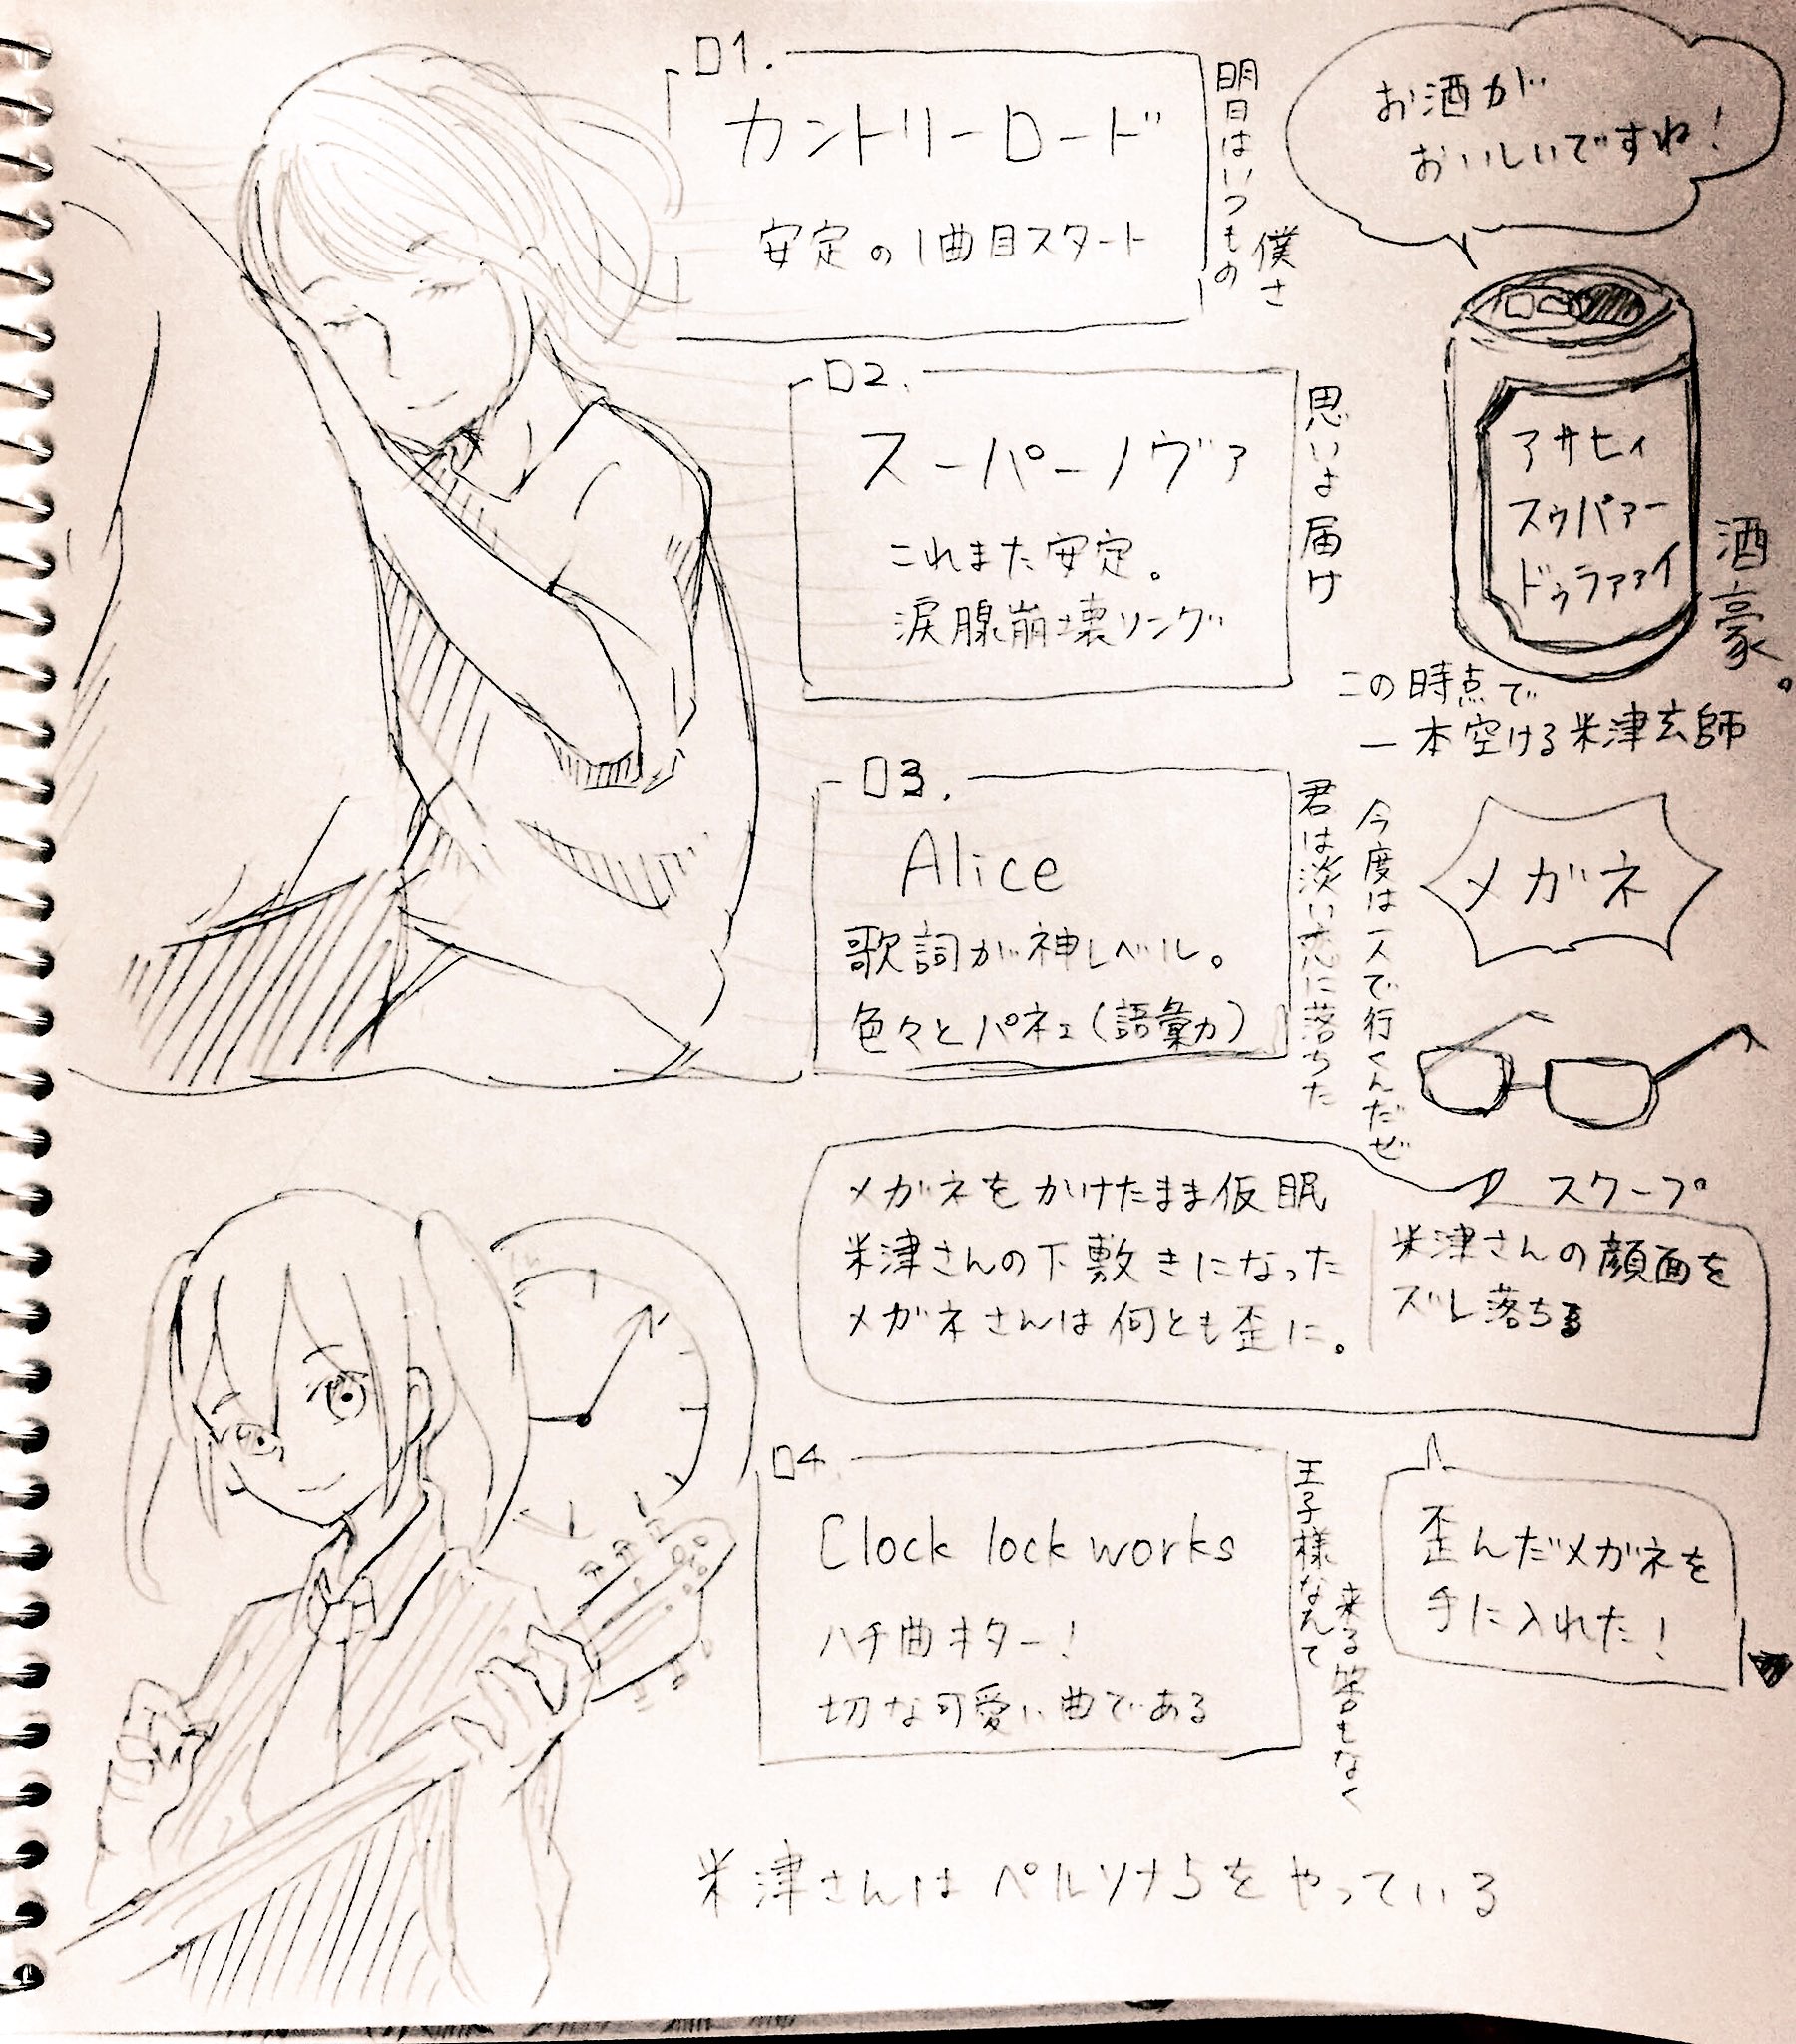 01.
カントリーロード
安定の1曲目スタート
明日はいつもの
僕さ
お酒が
おいしいですね!
アサヒィ
スゥパァー
ドゥラァァイ
酒豪。
この時点で
一本空ける米津玄師
02.
スーパーノヴァ
これまた安定。
涙腺崩壊ソング
思いよ届け
03.
Alice
歌詞が神レベル。
色々とパネェ(語彙力)
君は淡い恋に落ちた
今度は一人で行くんだぜ
メガネ
スクープ
メガネをかけたまま仮眠
米津さんの下敷きになった
メガネさんは何とも歪に。
米津さんの顔面を
ズレ落ちる
04.
Clock lock works
ハチ曲キター!
切な可愛い曲である
王子様なんて
来る筈もなく
歪んだメガネを
手に入れた!
米津さんはペルソナ5をやっている